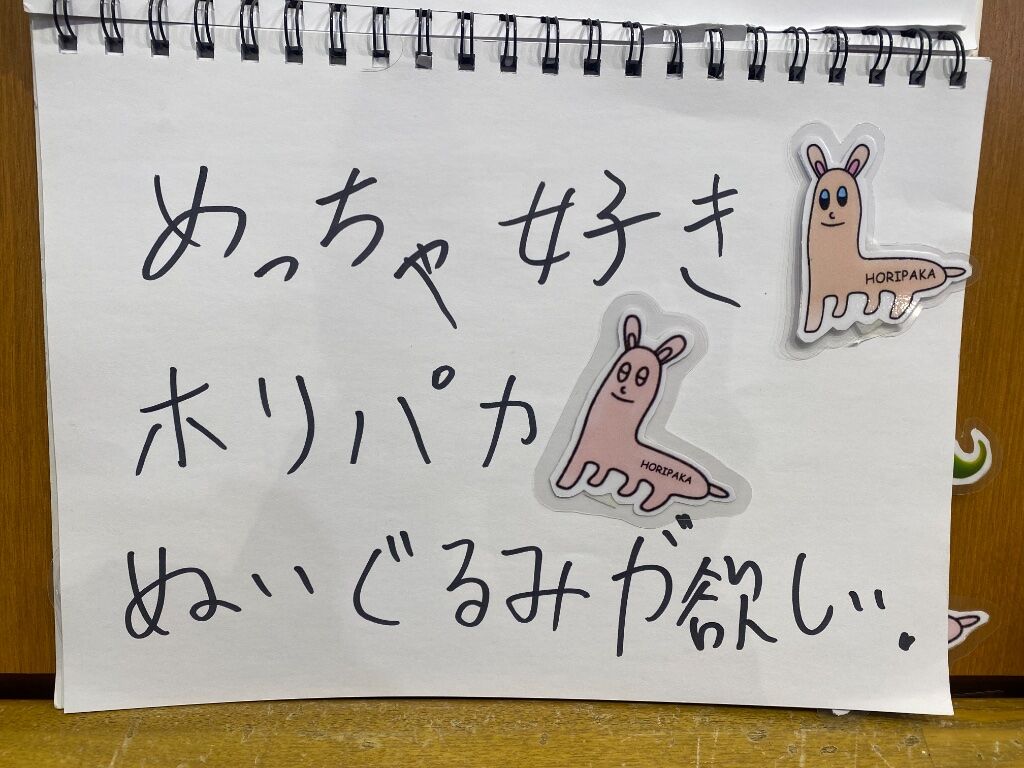 めっちゃ好き
HORIPAKA
ホリパカ
HORIPAKA
ぬいぐるみが欲しい.